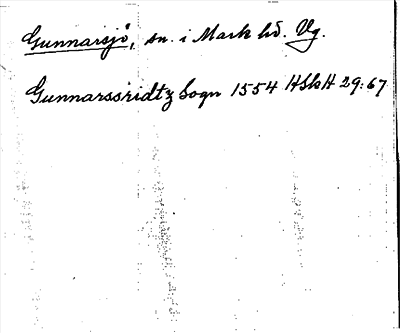 Gunnarsjö, sn. i Mark hd. Vg.
Gunnarssridtz Sogn 1554 HSkH 29:67